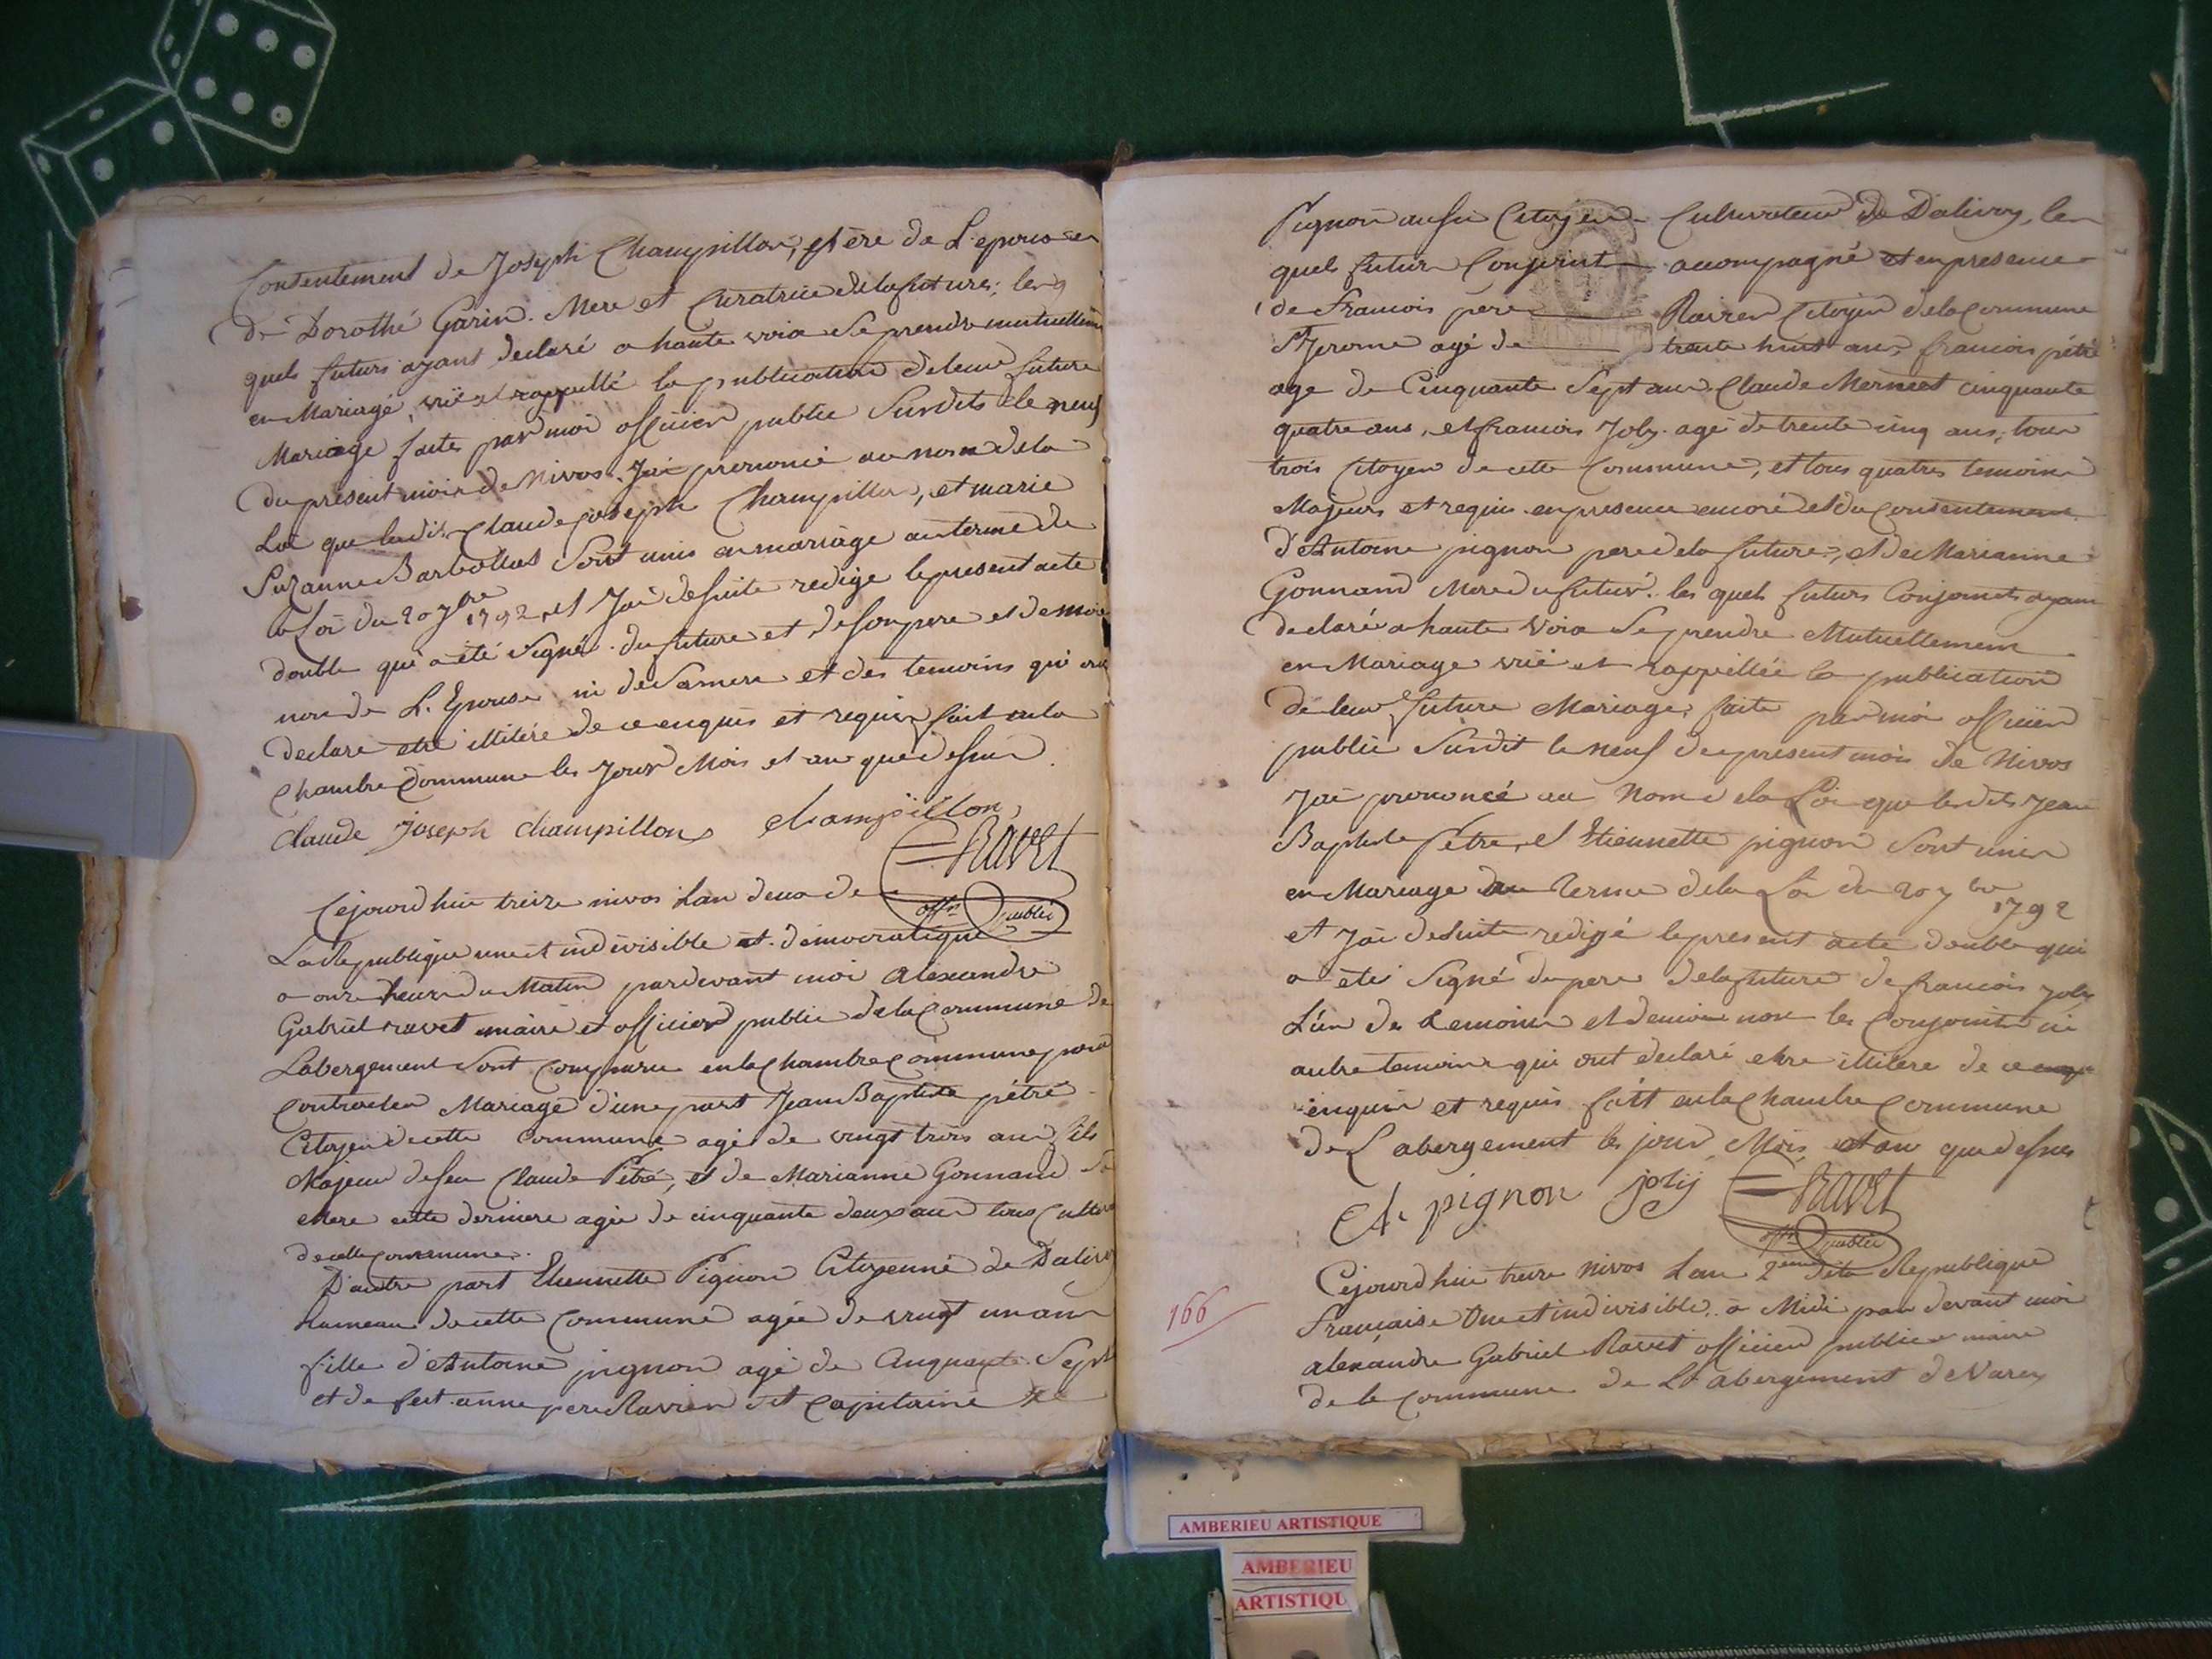 Consentement de Joseph Champillon, père de L'epoux et
de Dorothé Garin. Mere et Curatrice de la future; les
quels futurs ayant declaré a haute voix se prendre mutuellem
en Mariage, vüe et rappellé la publication de leur future
Mariage faite par moi officier public Susdits le neuf
du present mois de Nivos. J'ai prononcé au nom de la
Loi que lesdits Claude joseph Champillon, et marie
Suzanne Barbollat Sont unis en mariage au terme de
la Loi du 20 7bre 1792, et J'ai desuite redige le present acte
double qui a été Signé du future et de son pere et de moi
non de L'Epouse ni de Samere et des temoins qui ont
declare etre illiteré de ce enquis et requis fait en la
Chambre Commune les Jour Mois et an que dessus.
Claude joseph champillon champillon
Ravet
offr public
Cejourd'hui treize nivos Lan deux de
La Republique une et indivisible et démocratique
a onze heure du Matin pardevant moi Alexandre
Gabriel ravet maire et officier public de la Commune de
Labergement Sont Comparu en la Chambre Commune pour
Contracter Mariage d'une part Jean Baptiste pétré
Citoyen de cette Commune agé de vingt trois ans fils
Majeur de feu Claude Pétré, et de Marianne Gonnand Sa
Mere cette derniere agée de cinquante deux ans tous Cultiv
de cette Commune.
D'autre part Etiennette Pignon Citoyenne de Dalivoy
hameau de cette Commune agée de vingt un an
fille d'Antoine pignon agé de Cinquante Sept
et de feue anne pere Ravier dit Capitaine
Pignon aussi Citoyen Cultivateur de Dalivoy, les
quels futur Conjoint accompagné et en presence
de francois pere Ravier Citoyen de la Commune
St Jerome agé de trente huit ans, francois pétré
age de Cinquante Sept ans Claude Mermet cinquante
quatre ans, et francois Joly agé de trente cinq ans, tous
trois Citoyen de cette Commune, et tous quatres temoins
Majeurs et requis en presence encore et du Consentement
d'Antoine pignon pere de la future, et de Marianne
Gonnand Mere du futur. les quels futurs Conjoints ayant
declaré a haute Voix Se prendre Mutuellement
en Mariage vüe et rappellée la publication
de leur future Mariage faite par moi officier
public Susdit le neuf du present mois de Nivos
J'ai prononcé au Nom de la Loi que lesdits Jean
Baptiste Pétre, et Etiennette pignon Sont unis
en Mariage au Terme de la Loi du 20 7bre 1792
et J'ai desuite redigé le present acte double qui
a été Signé du pere de la future de francois Joly
L'un des temoins et de moi non les Conjoints ni
autre temoins qui ont declaré etre illitere de ce
enquis et requis fait en la Chambre Commune
de Labergement les jour, Mois, et an que dessus
A. pignon jolij Ravet
offr public
166
Cejourd'hui treize Nivos Lan 2eme de la Republique
Française Une et indivisible a Midi par devant moi
alexandre Gabriel Ravet officier public maire
de la Commune de L'abergement de Varey
AMBERIEU ARTISTIQUE
AMBERIEU
ARTISTIQU